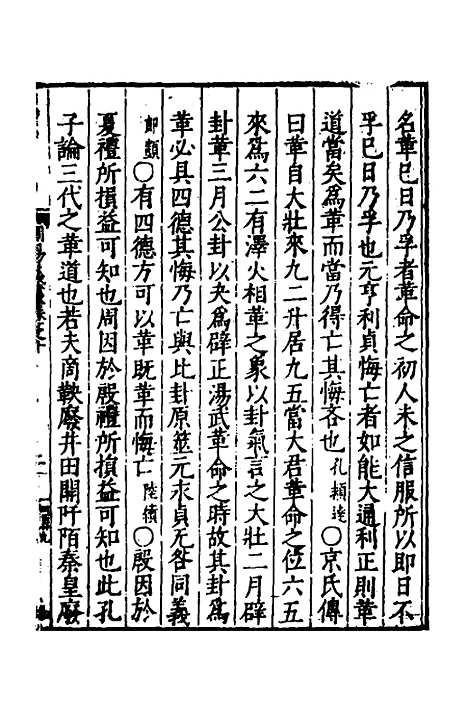 名革已日乃孚者革命之初人未之信服所以即日不
孚已日乃孚也元亨利貞悔亡者如能大通利正則革
道當矣爲革而當乃得亡其悔吝也孔穎達〇京氏傳
曰革自大壯來九二升居九五當大君革命之位六五
來爲六二有澤火相革之象以卦氣言之大壯二月辟
卦革三月公卦以夬爲辟正湯武革命之時故其卦爲
革必具四德其悔乃亡與比卦原筮元永貞无咎同義
鄭類〇有四德方可以革旣革而悔亡陸績〇殷因於
夏禮所損益可知也周因於殷禮所損益可知也此孔
子論三代之革道也若夫商鞅廢井田開阡陌秦皇廢